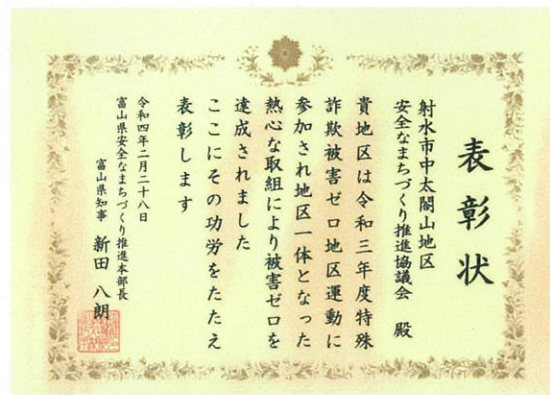 表彰状
射水市中太閤山地区
安全なまちづくり推進協議会 殿
貴地区は令和三年度特殊
詐欺被害ゼロ地区運動に
参加され地区一体となった
熱心な取組により被害ゼロを
達成されました
ここにその功労をたたえ
表彰します
令和四年二月二十八日
富山県安全なまちづくり推進本部長
富山県知事 新田 八朗